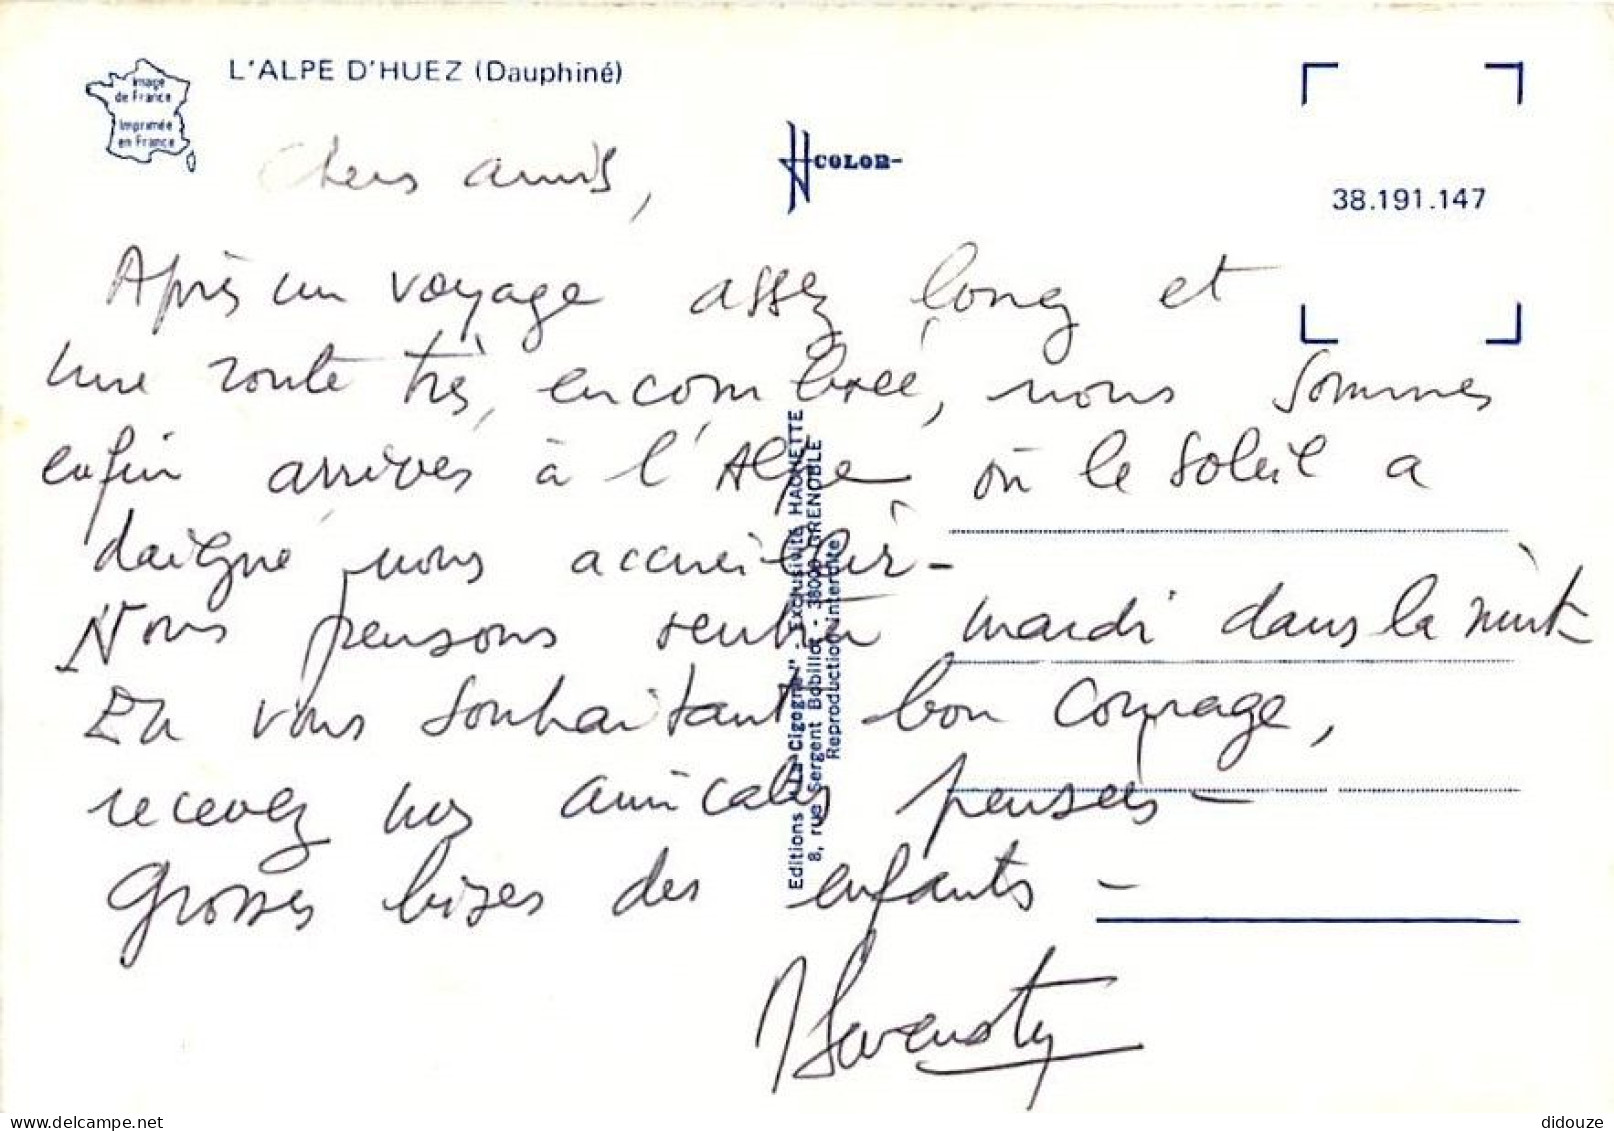 L'ALPE D'HUEZ (Dauphiné)
Image
de France
Imprimée
en France
COLOR
38.191.147
Chers amis,
Après un voyage assez long et
une route très encombrée, nous sommes
enfin arrivés à l'Alpe où le soleil a
daigné nous accueillir -
Nous pensons rentrer mardi dans la nuit
En vous souhaitant bon courage,
recevez nos amicales pensées -
Grosses bises des enfants -
Editions "La Cigogne" - Exclusivité HACHETTE
8, rue Sergent Bobillot - 38000 GRENOBLE
Reproduction interdite
didouze